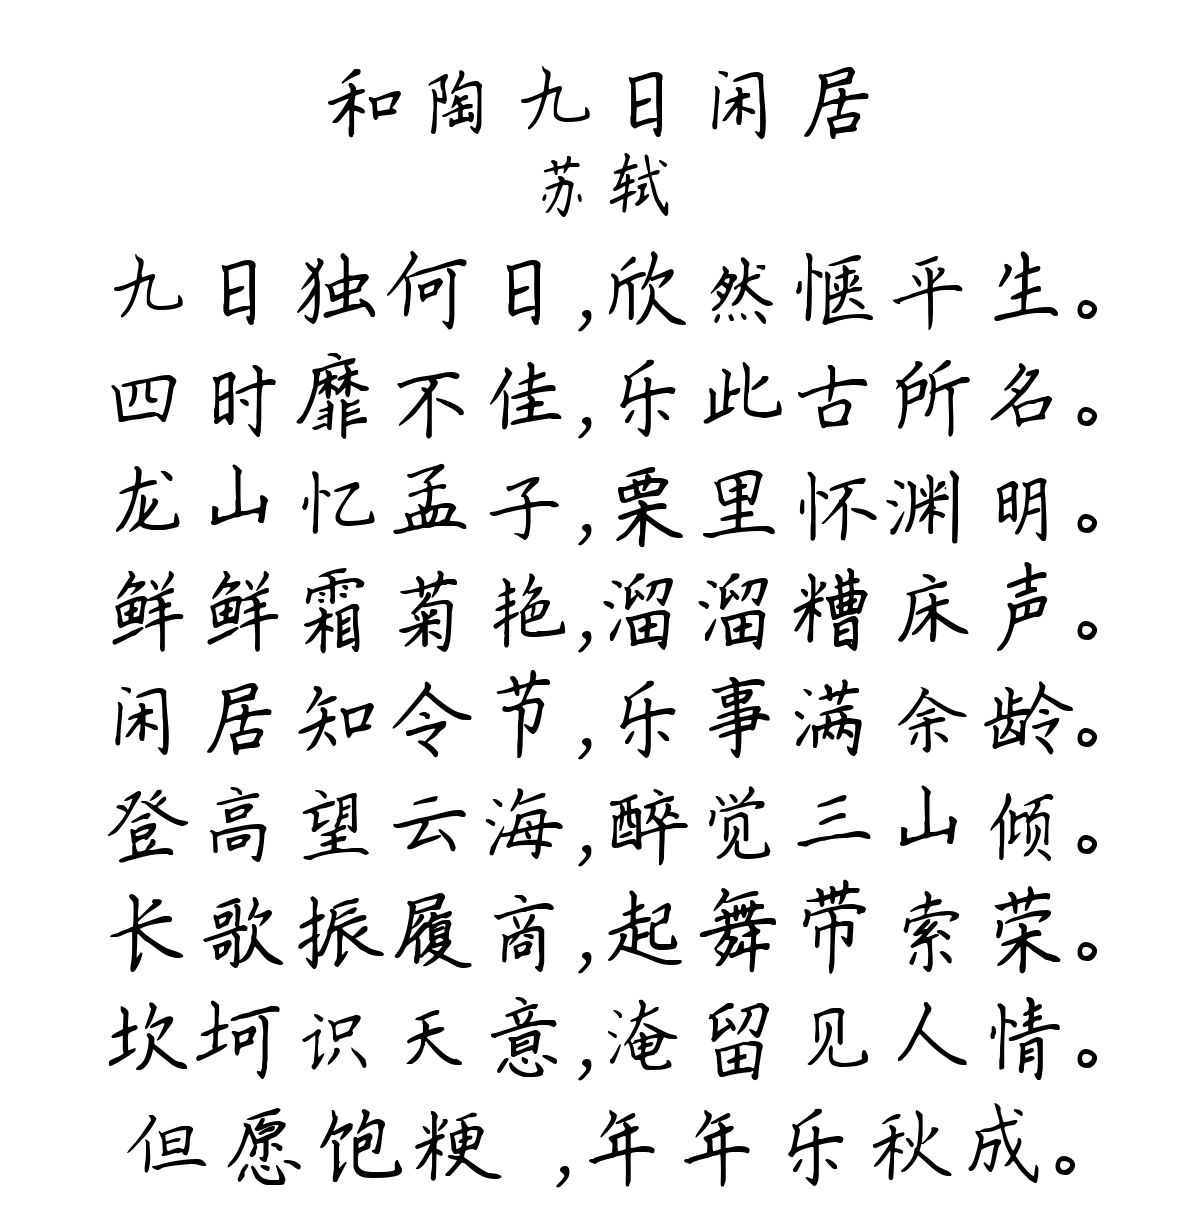 和陶九日闲居
苏轼
九日独何日,欣然惬平生。
四时靡不佳,乐此古所名。
龙山忆孟子,栗里怀渊明。
鲜鲜霜菊艳,溜溜糟床声。
闲居知令节,乐事满余龄。
登高望云海,醉觉三山倾。
长歌振履商,起舞带索荣。
坎坷识天意,淹留见人情。
但愿饱粳 ,年年乐秋成。